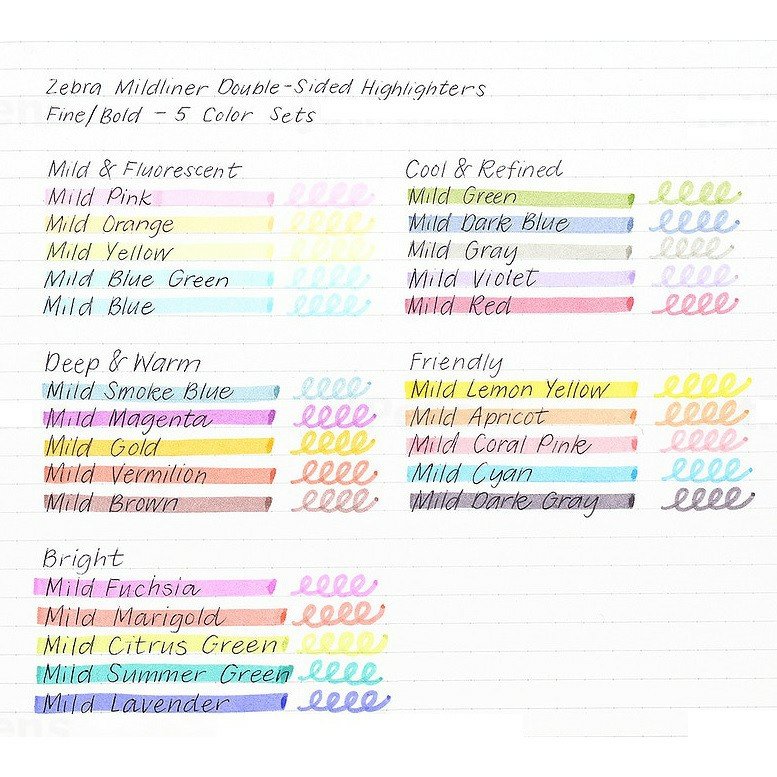 Zebra Mildliner Double-Sided Highlighters
Fine/Bold - 5 Color Sets
Mild & Fluorescent
Mild Pink
Mild Orange
Mild Yellow
Mild Blue Green
Mild Blue
Cool & Refined
Mild Green
Mild Dark Blue
Mild Gray
Mild Violet
Mild Red
Deep & Warm
Mild Smoke Blue
Mild Magenta
Mild Gold
Mild Vermilion
Mild Brown
Friendly
Mild Lemon Yellow
Mild Apricot
Mild Coral Pink
Mild Cyan
Mild Dark Gray
Bright
Mild Fuchsia
Mild Marigold
Mild Citrus Green
Mild Summer Green
Mild Lavender